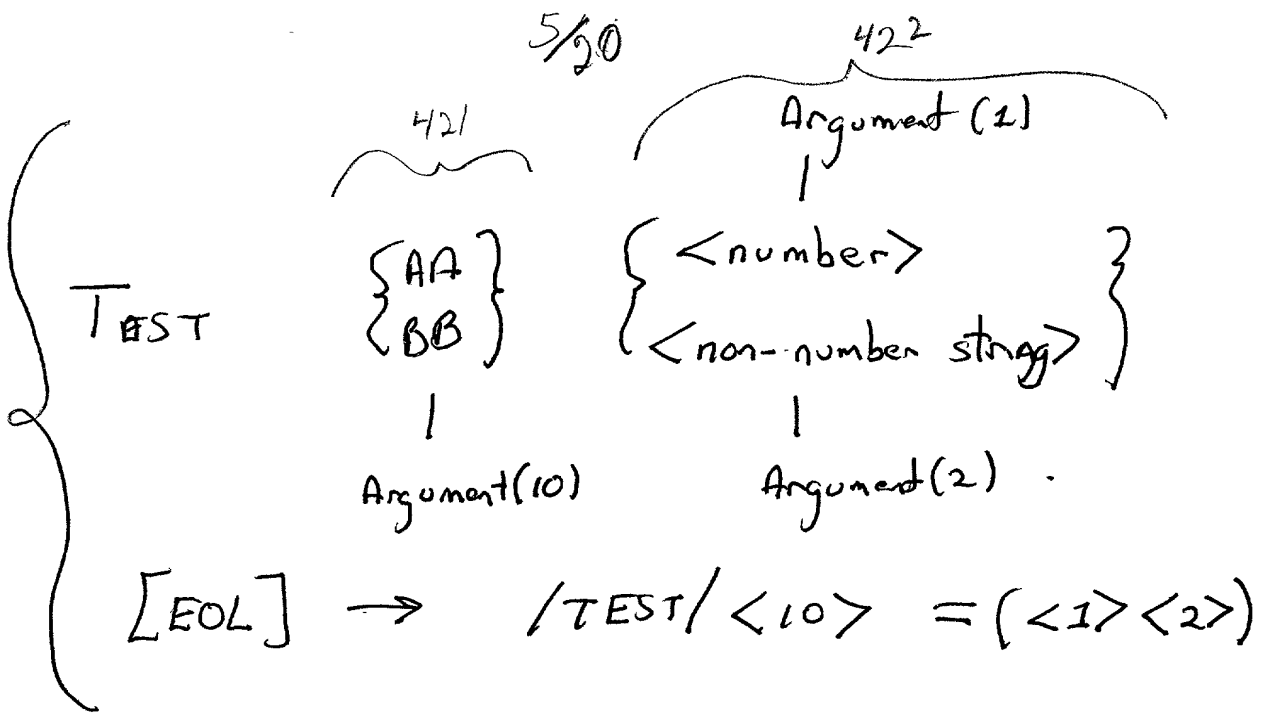 5/20
421 422
Argument (1)
{AA} {<number>}
TEST
BB <non-number string>
Argument(10) Argument(2) .
[EOL] → /TEST/<10> =(<1><2>)